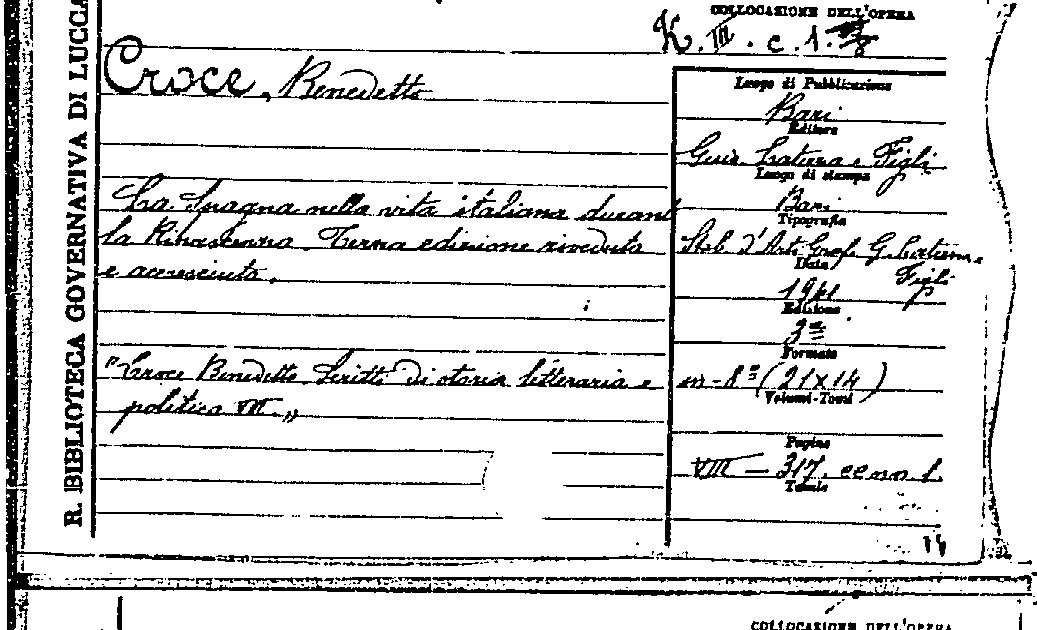 R. BIBLIOTECA GOVERNATIVA DI LUCCA
COLLOCAZIONE DELL'OPERA
K. III. c. 1.
Croce, Benedetto
La Spagna nella vita italiana durante
la Rinascenza. Terza edizione riveduta
e accresciuta.
"Croce Benedetto Scritti di storia letteraria e
politica VIII.„
Luogo di Pubblicazione
Bari
Editore
Gius. Laterza e Figli
Luogo di stampa
Bari
Tipografia
Stab. d'Arti Graf. G. Laterza e
Figli
Data
1941
Edizione
3ª
Formato
in-8° (21x14)
Volumi-Tomi
Pagine
VIII - 317,
Tavole
COLLOCAZIONE DELL'OPERA